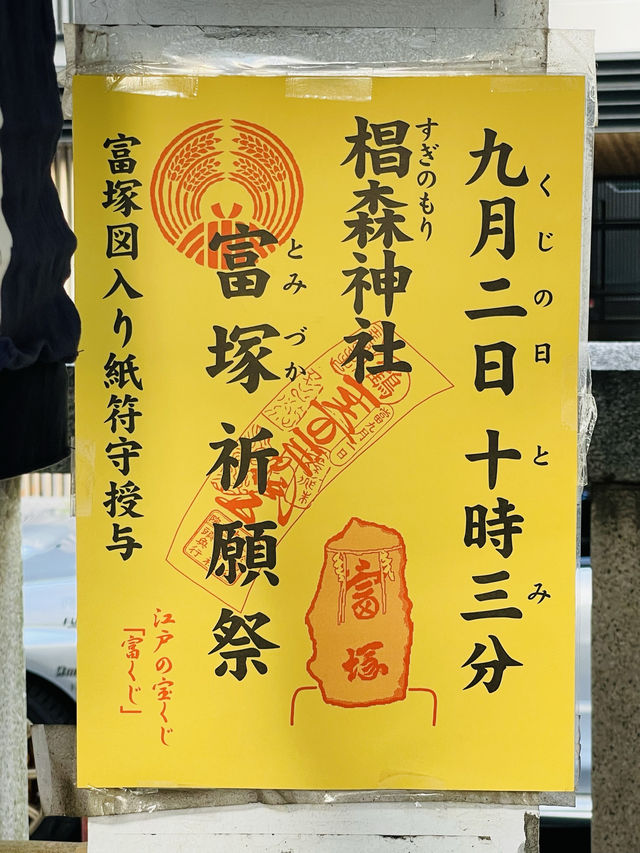 九月二日 十時三分
くじの日 とみ
椙森神社
すぎのもり
富塚祈願祭
とみづか
富塚図入り紙符守授与
富塚
江戸の宝くじ
「富くじ」